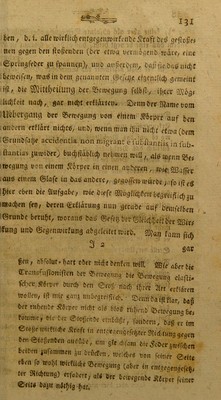 131
hen, d. i. alle wirklich entgegenwirkende Kraft des gestoße-
nen gegen den stoßenden (der etwa vermögend wäre, eine
Springfeder zu spannen), und außerdem, daß sie das nicht
beweiset, was in dem genannten Gesetze eigentlich gemeint
ist, die Mittheilung der Bewegung selbst, ihrer Mög-
lichkeit nach, gar nicht erklärten. Denn der Name vom
Uebergang der Bewegung von einem Körper auf den
andern erklärt nichts, und, wenn man ihn nicht etwa (dem
Grundsatze accidentia non migrant e substantiis in sub-
stantias zuwider) buchstäblich nehmen will, als wenn Be-
wegung von einem Körper in einen anderen, wie Wasser
aus einem Glase in das andere, gegossen würde, so ist es
hier eben die Aufgabe, wie diese Möglichkeit begreiflich zu
machen sey, deren Erklärung nun gerade auf demselben
Grunde beruht, woraus das Gesetz der Gleichheit der Wir-
kung und Gegenwirkung abgeleitet wird. Man kann sich
J 2 gar
hen, absolut-hart oder nicht denken will. Wie aber die
Transfusionisten der Bewegung die Bewegung elasti-
scher Körper durch den Stoß nach ihrer Art erklären
wollen, ist mir ganz unbegreiflich. Denn da ist klar, daß
der ruhende Körper nicht als bloß ruhend Bewegung be-
komme, die der Stoßende einbüßt, sondern, daß er im
Stoße wirkliche Kraft in entgegengesetzter Richtung gegen
den Stoßenden ausübe, um gleichsam die Feder zwischen
beiden zusammen zu drücken, welches von seiner Seite
eben so wohl wirkliche Bewegung (aber in entgegengesetz-
ter Richtung) erfodert, als der bewegende Körper seiner
Seits dazu nöthig hat.